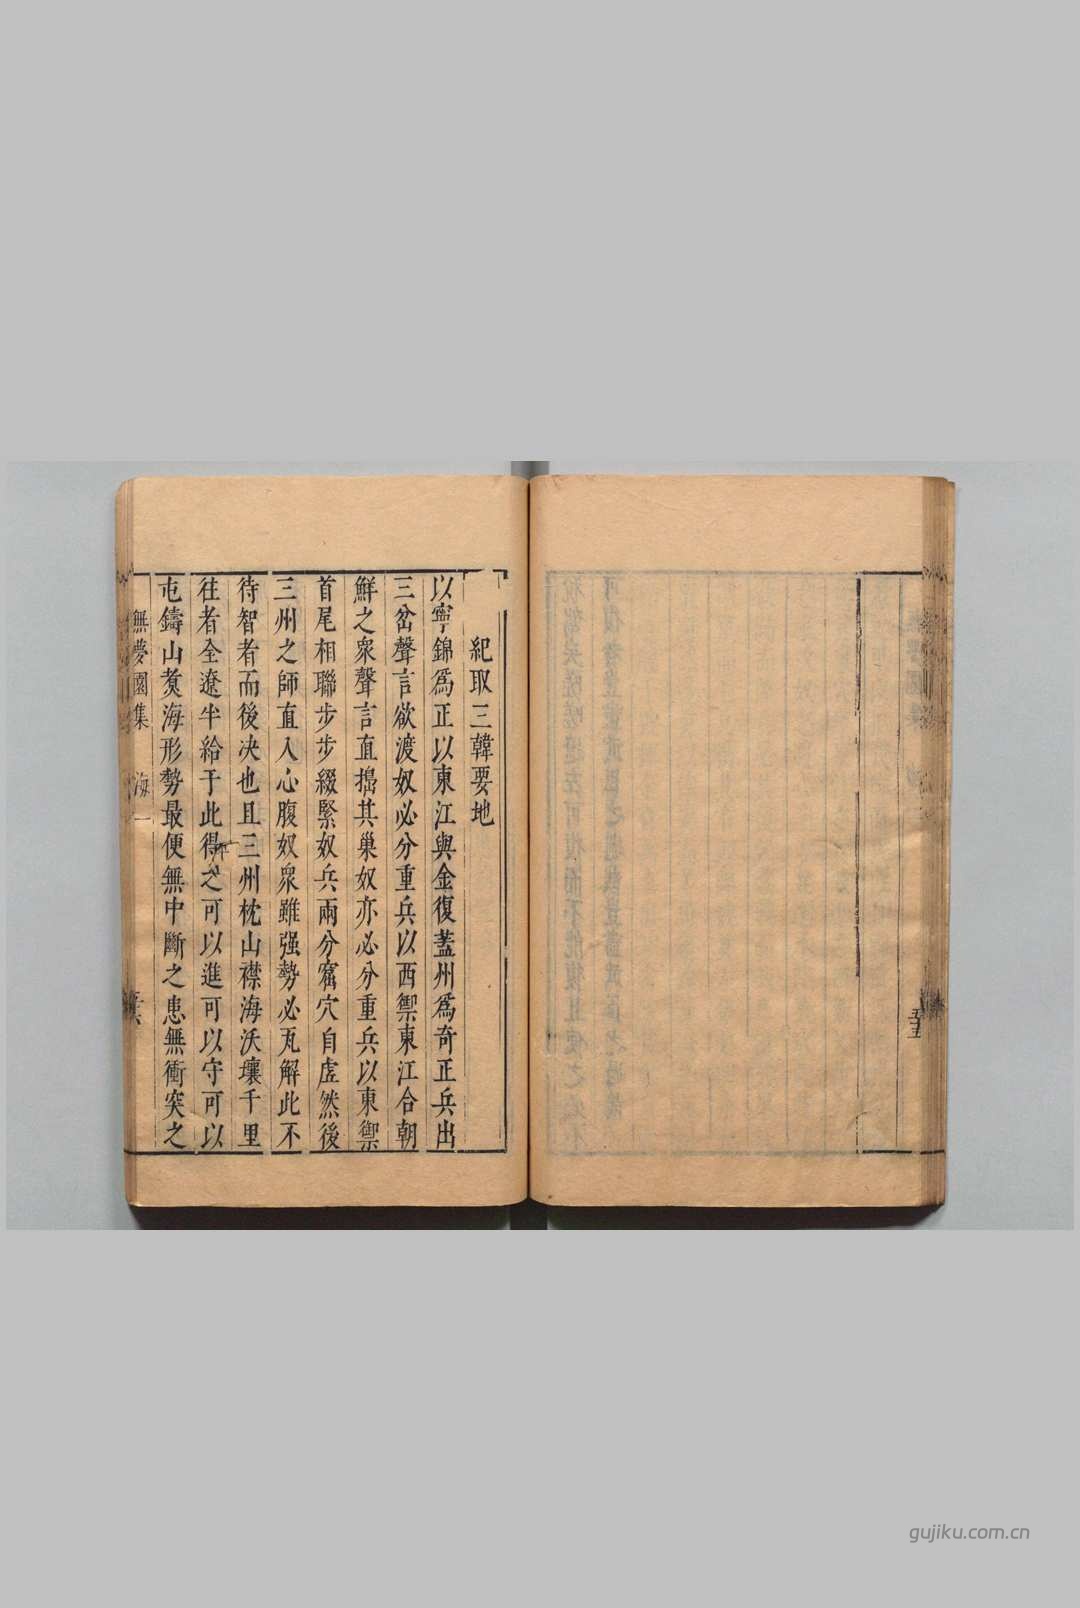 五十五
紀取三韓要地
以寧錦爲正以東江與金復蓋州爲奇正兵出
三岔聲言欲渡奴必分重兵以西禦東江合朝
鮮之衆聲言直搗其巢奴亦必分重兵以東禦
首尾相聯步步綴緊奴兵兩分窟穴自虗然後
三州之師直入心腹奴衆雖强勢必瓦解此不
待智者而後决也且三州枕山襟海沃壤千里
往者全遼半給于此得之可以進可以守可以
屯鑄山煑海形勢最便無中斷之患無衝突之
無夢園集 海一
gujiku.com.cn